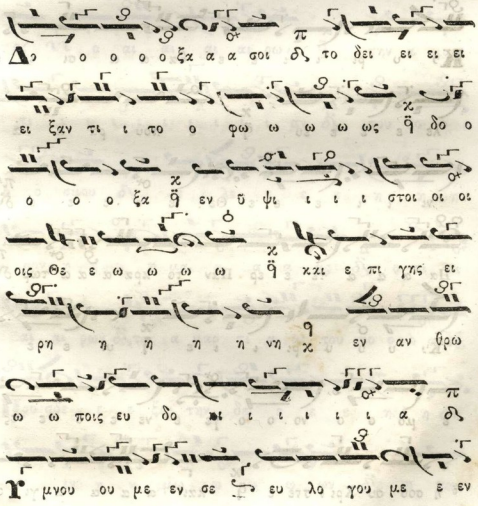 Δο ο ο ο ο ξα α α σοι το δει ει ει ει
ει ξαν τι ι το ο φω ω ω ω ω ως δο ο
ο ο ο ξα εν υ ψι ι ι ι στοι οι οι
οις Θε ε ω ω ω ω και ε πι γης ει
ρη η η η η νη εν αν θρω
ω ω ποις ευ δο κι ι ι ι ι ι α
Υ μνου ου με εν σε ευ λο γου με ε εν